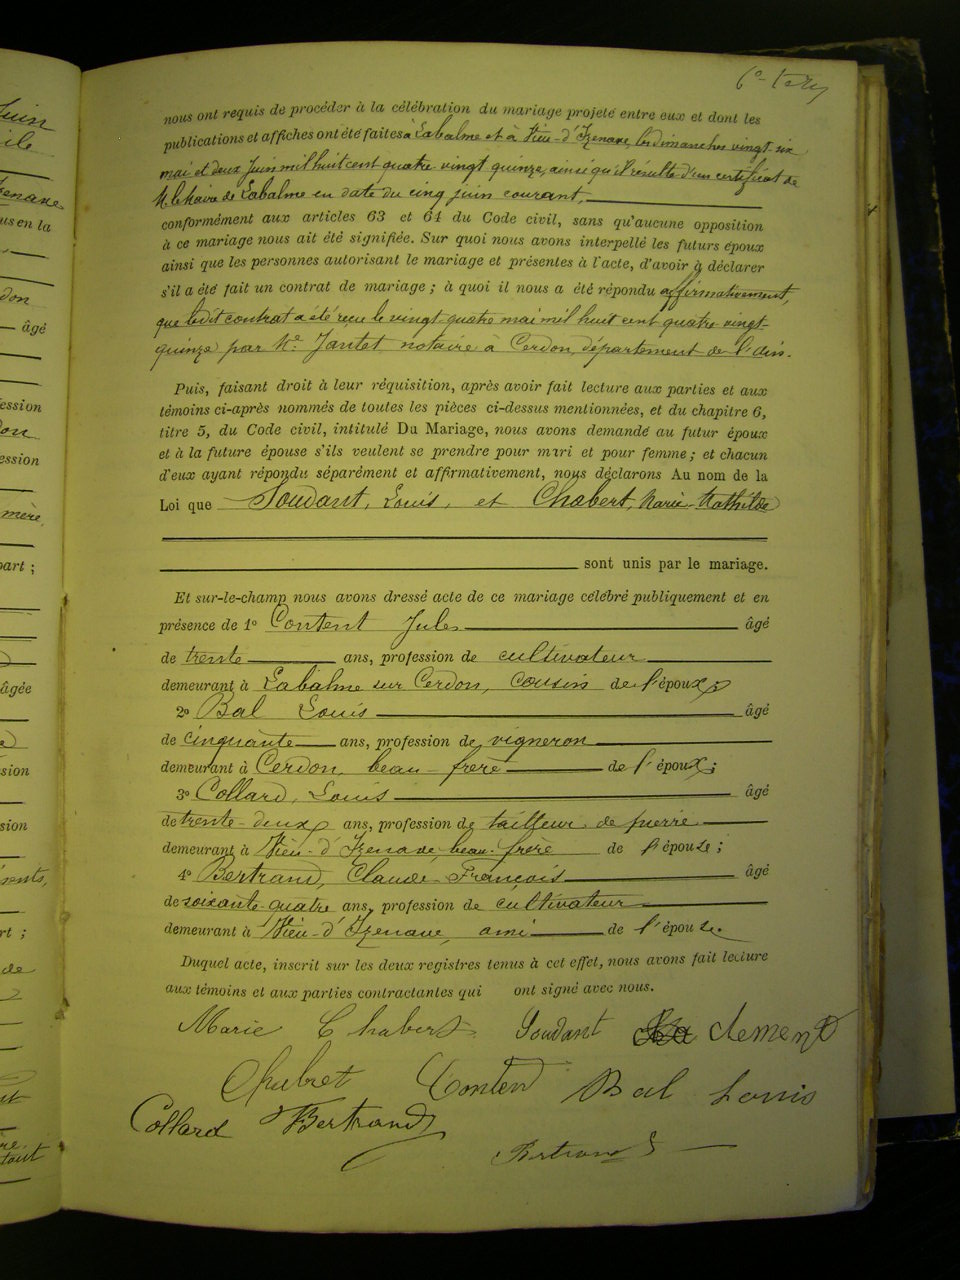 nous ont requis de procéder à la célébration du mariage projeté entre eux et dont les
publications et affiches ont été faites à Labalme et à Vieu-d'Izenave, les dimanches vingt-six
mai et deux Juin mil huit cent quatre-vingt quinze, ainsi qu'il résulte d'un certificat de
M. le Maire de Labalme en date du cinq juin courant,
conformément aux articles 63 et 64 du Code civil, sans qu'aucune opposition
à ce mariage nous ait été signifiée. Sur quoi nous avons interpellé les futurs époux
ainsi que les personnes autorisant le mariage et présentes à l'acte, d'avoir à déclarer
s'il a été fait un contrat de mariage ; à quoi il nous a été répondu affirmativement,
que ledit contrat a été reçu le vingt-quatre mai mil huit cent quatre vingt-
quinze par Me Jantet notaire à Cerdon, département de l'Ain.
Puis, faisant droit à leur réquisition, après avoir fait lecture aux parties et aux
témoins ci-après nommés de toutes les pièces ci-dessus mentionnées, et du chapitre 6,
titre 5, du Code civil, intitulé Du Mariage, nous avons demandé au futur époux
et à la future épouse s'ils veulent se prendre pour mari et pour femme ; et chacun
d'eux ayant répondu séparément et affirmativement, nous déclarons Au nom de la
Loi que Soudant, Louis, et Chabert, Marie-Mathilde
sont unis par le mariage.
Et sur-le-champ nous avons dressé acte de ce mariage célébré publiquement et en
présence de 1º Content Jules âgé
de trente ans, profession de cultivateur
demeurant à Labalme sur Cerdon, cousin de l'époux ;
2º Bal Louis âgé
de cinquante ans, profession de vigneron
demeurant à Cerdon, beau-frère de l'époux ;
3º Collard, Louis âgé
de trente-deux ans, profession de tailleur de pierre
demeurant à Vieu-d'Izenave, beau-frère de l'épouse ;
4º Bertrand, Claude-François âgé
de soixante-quatre ans, profession de cultivateur
demeurant à Vieu-d'Izenave, ami de l'épouse.
Duquel acte, inscrit sur les deux registres tenus à cet effet, nous avons fait lecture
aux témoins et aux parties contractantes qui ont signé avec nous.
Marie Chabert Soudant clement
Chabret Conten Bal Louis
Collard Bertrand
Bertrand